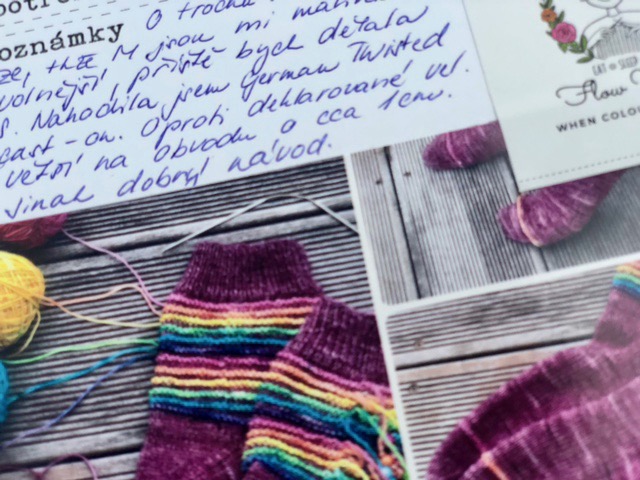 oznámky O trochu
že, M jsou mi
volnější, příště bych dělala
S. Nahodila jsem German Twisted
cast-on. Oproti deklarované vel.
větší na obvodu o cca 1cm.
Jinak dobrý návod.
EAT SLEEP
Flow
WHEN COLO